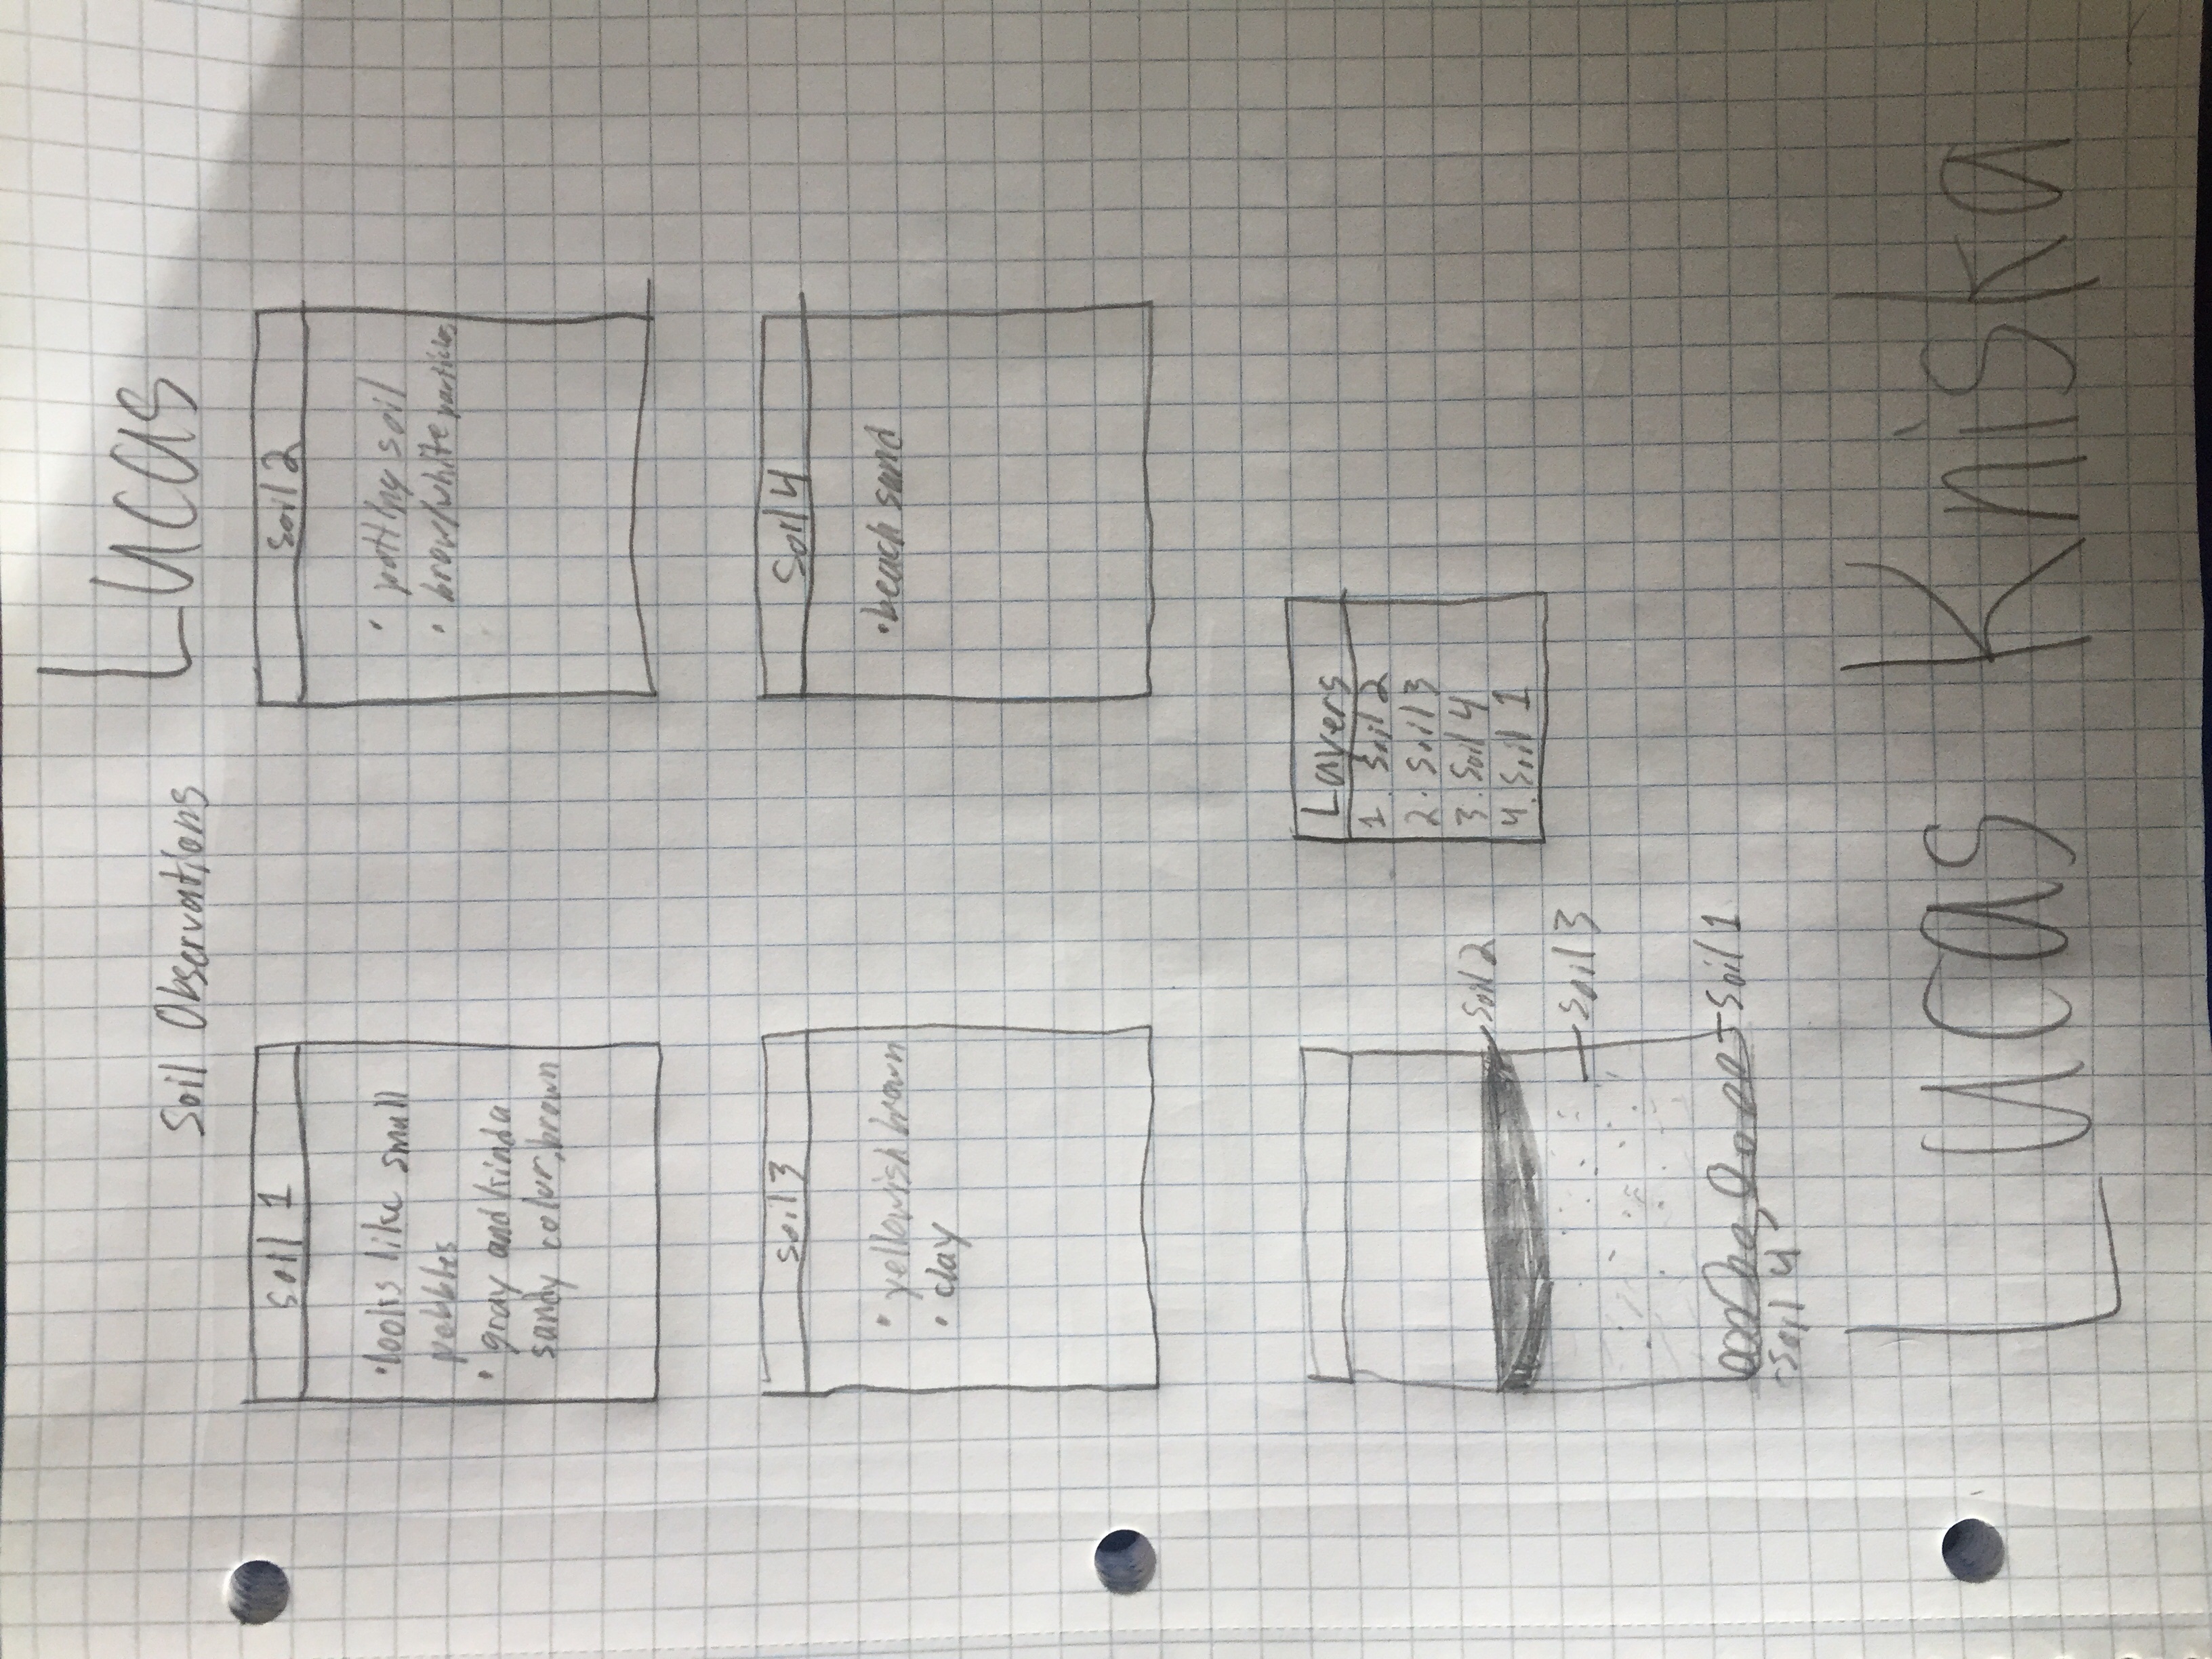 Lucas
Soil Observations
soil 1
• looks like small
pebbles
• gray and kinda
sandy color, brown
soil 2
• potting soil
• brow/white particles
soil 3
• yellowish brown
• clay
Soil 4
• beach sand
Soil 2
Soil 3
Soil 1
Soil 4
Layers
1. Soil 2
2. Soil 3
3. Soil 4
4. Soil 1
Lucas Kniska